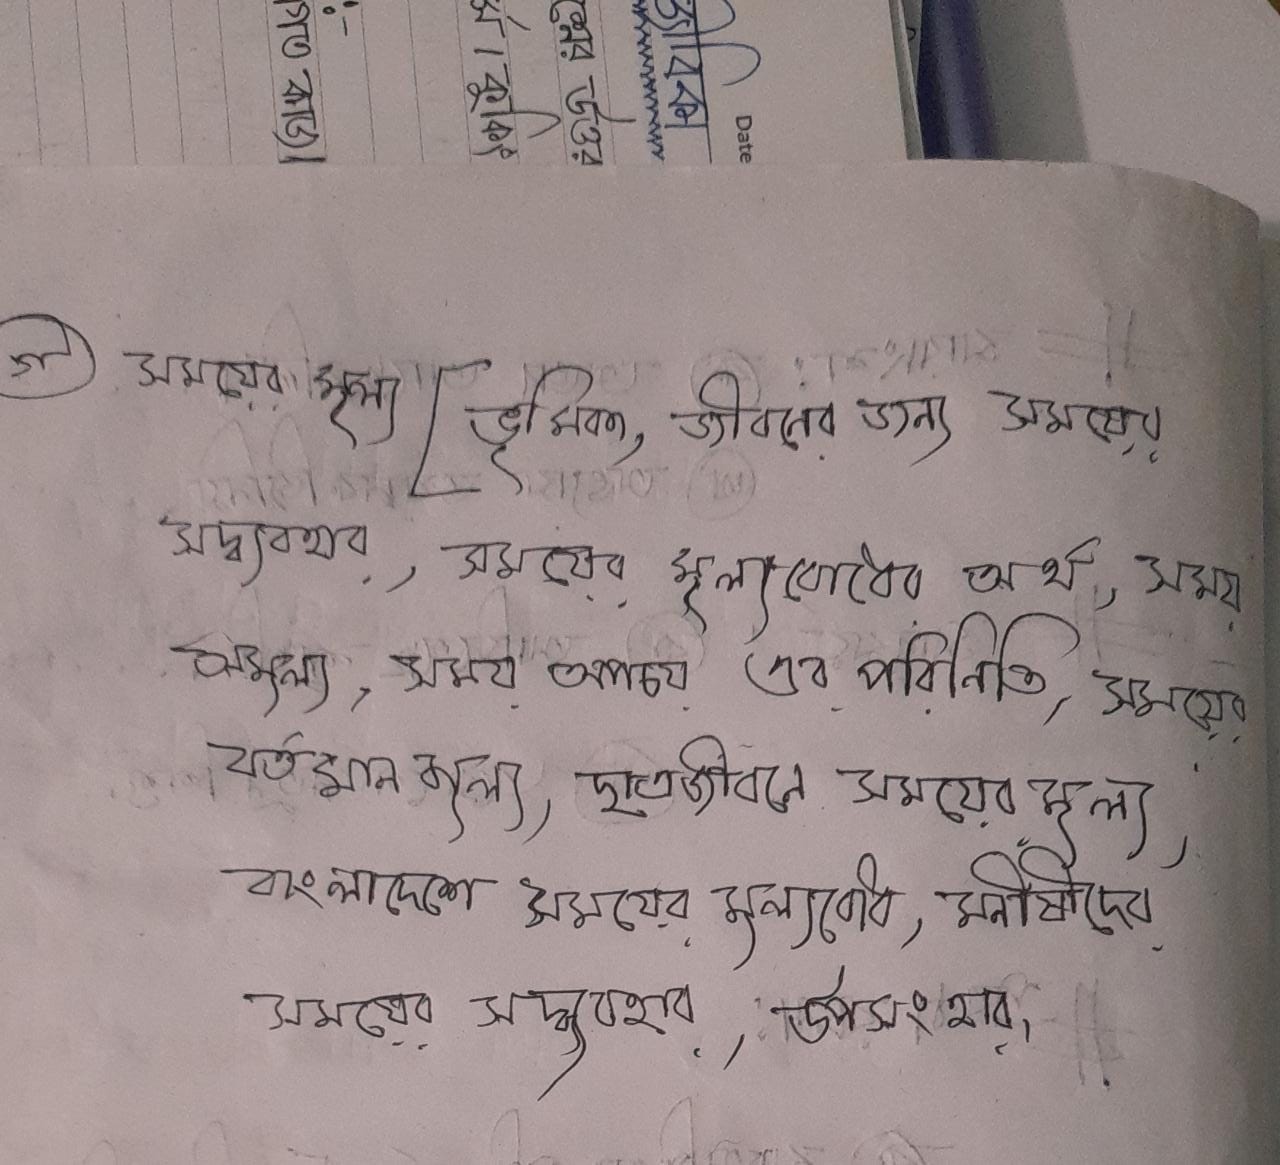 গ সময়ের মূল্য [ ভূমিকা, জীবনের জন্য সময়ের
সদ্ব্যবহার, সময়ের মূল্যবোধের অর্থ, সময়
অমূল্য, সময় অপচয় এর পরিনিতি, সময়ের
বর্তমান মূল্য, ছাত্রজীবনে সময়ের মূল্য,
বাংলাদেশে সময়ের মূল্যবোধ, মনীষীদের
সময়ের সদ্ব্যবহার, উপসংহার,
Date